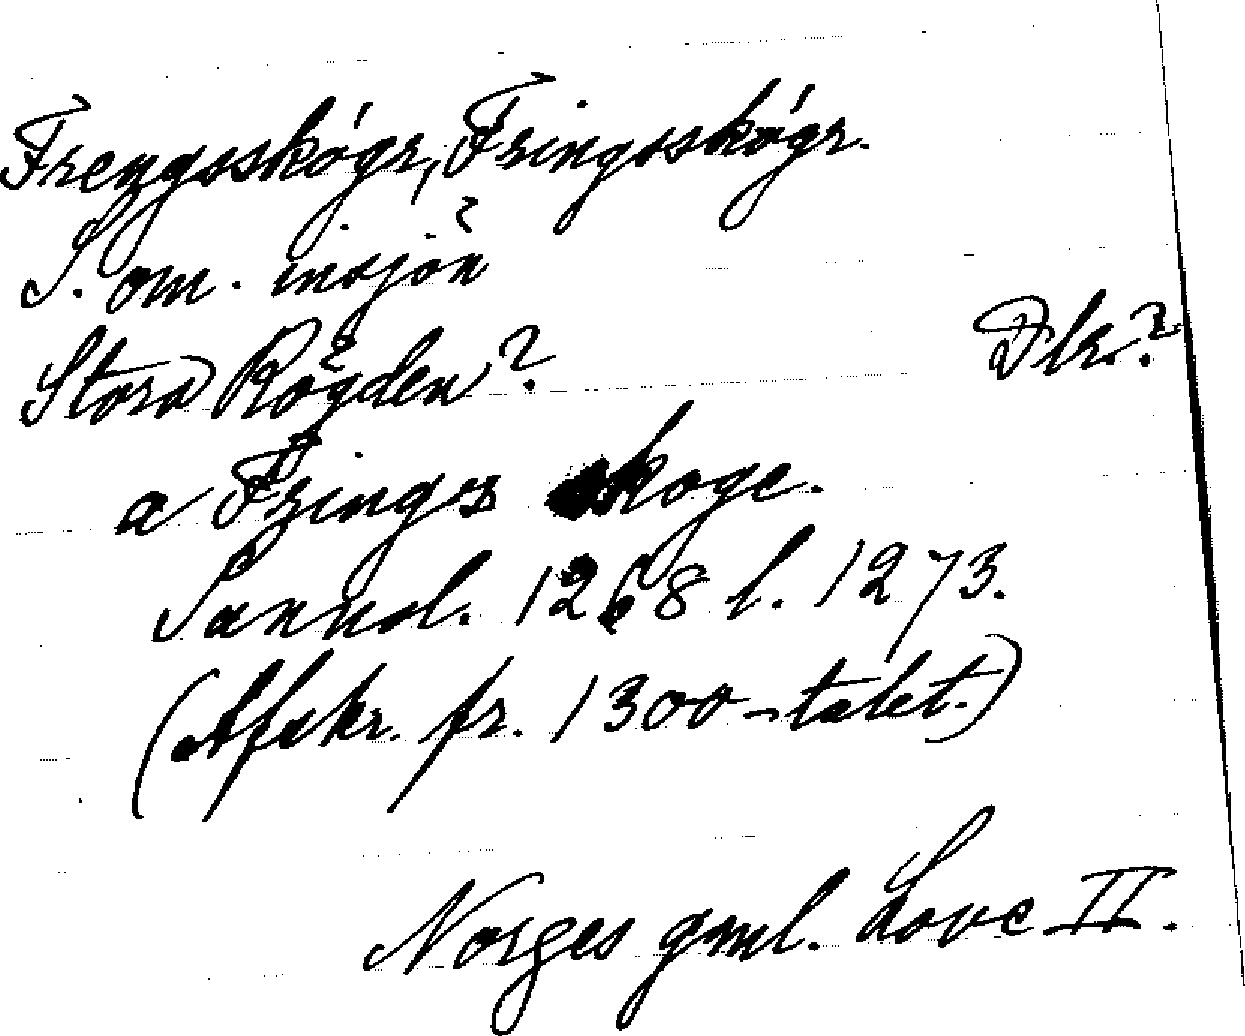 Frengsskógr, Fringsskógr.
S. om. insjön ?
Stora Rögden ? Dlr. ?
a Frings skoge.
Sannol. 1268 l. 1273.
(Afskr. fr. 1300-talet.)
Norges gml. Love II.